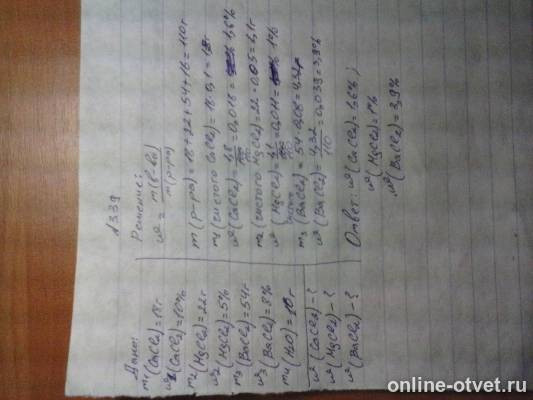 №339
Дано:
m₁(CaCl₂)=18г
ω₁(CaCl₂)=10%
m₂(MgCl₂)=22г
ω₂(MgCl₂)=5%
m₃(BaCl₂)=54г
ω₃(BaCl₂)=8%
m₄(H₂O)=10г
ω(CaCl₂)-?
ω(MgCl₂)-?
ω(BaCl₂)-?
Решение:
ω = m(в-ва) / m(р-ра)
m(р-ра)=18+22+54+16=110г
m₁(чистого CaCl₂)=18·0,1=1,8г
ω(CaCl₂)=1,8/110=0,016=1,6%
m₂(чистого MgCl₂)=22·0,05=1,1г
ω(MgCl₂)=1,1/110=0,01=1%
m₃(BaCl₂)=54·0,08=4,32г
ω(BaCl₂)=4,32/110=0,039=3,9%
Ответ: ω(CaCl₂)=1,6%;
ω(MgCl₂)=1%
ω(BaCl₂)=3,9%
online-otvet.ru